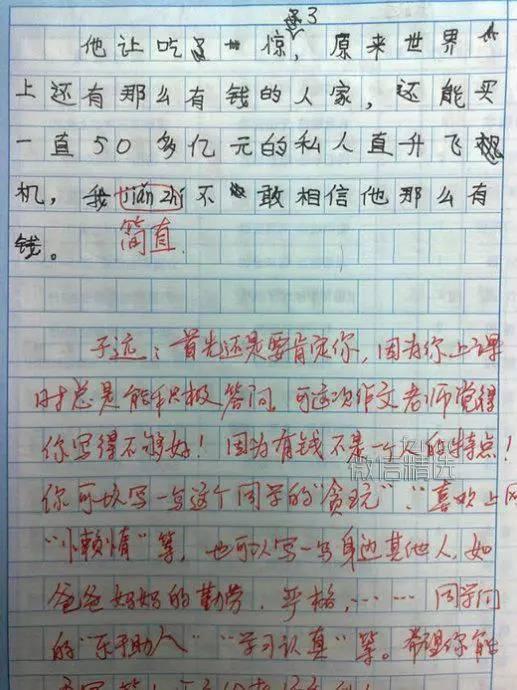 他让吃了一惊了,原来世界
上还有那么有钱的人家,还能买
一直50多亿元的私人直升飞
机,我jiǎn zhí不敢相信他那么有
钱。 简直
子远:首先还是要肯定你,因为你上课
时总是能积极答问。可这次作文老师觉得
你写得不够好!因为有钱不是一个人的特点!
微信精选
你可以写一写这个同学的“贪玩”、“喜欢上网
“小懒惰”等,也可以写一写身边其他人,如
爸爸妈妈的勤劳、严格,…… 同学们
的“乐于助人”“学习认真”等。希望你能